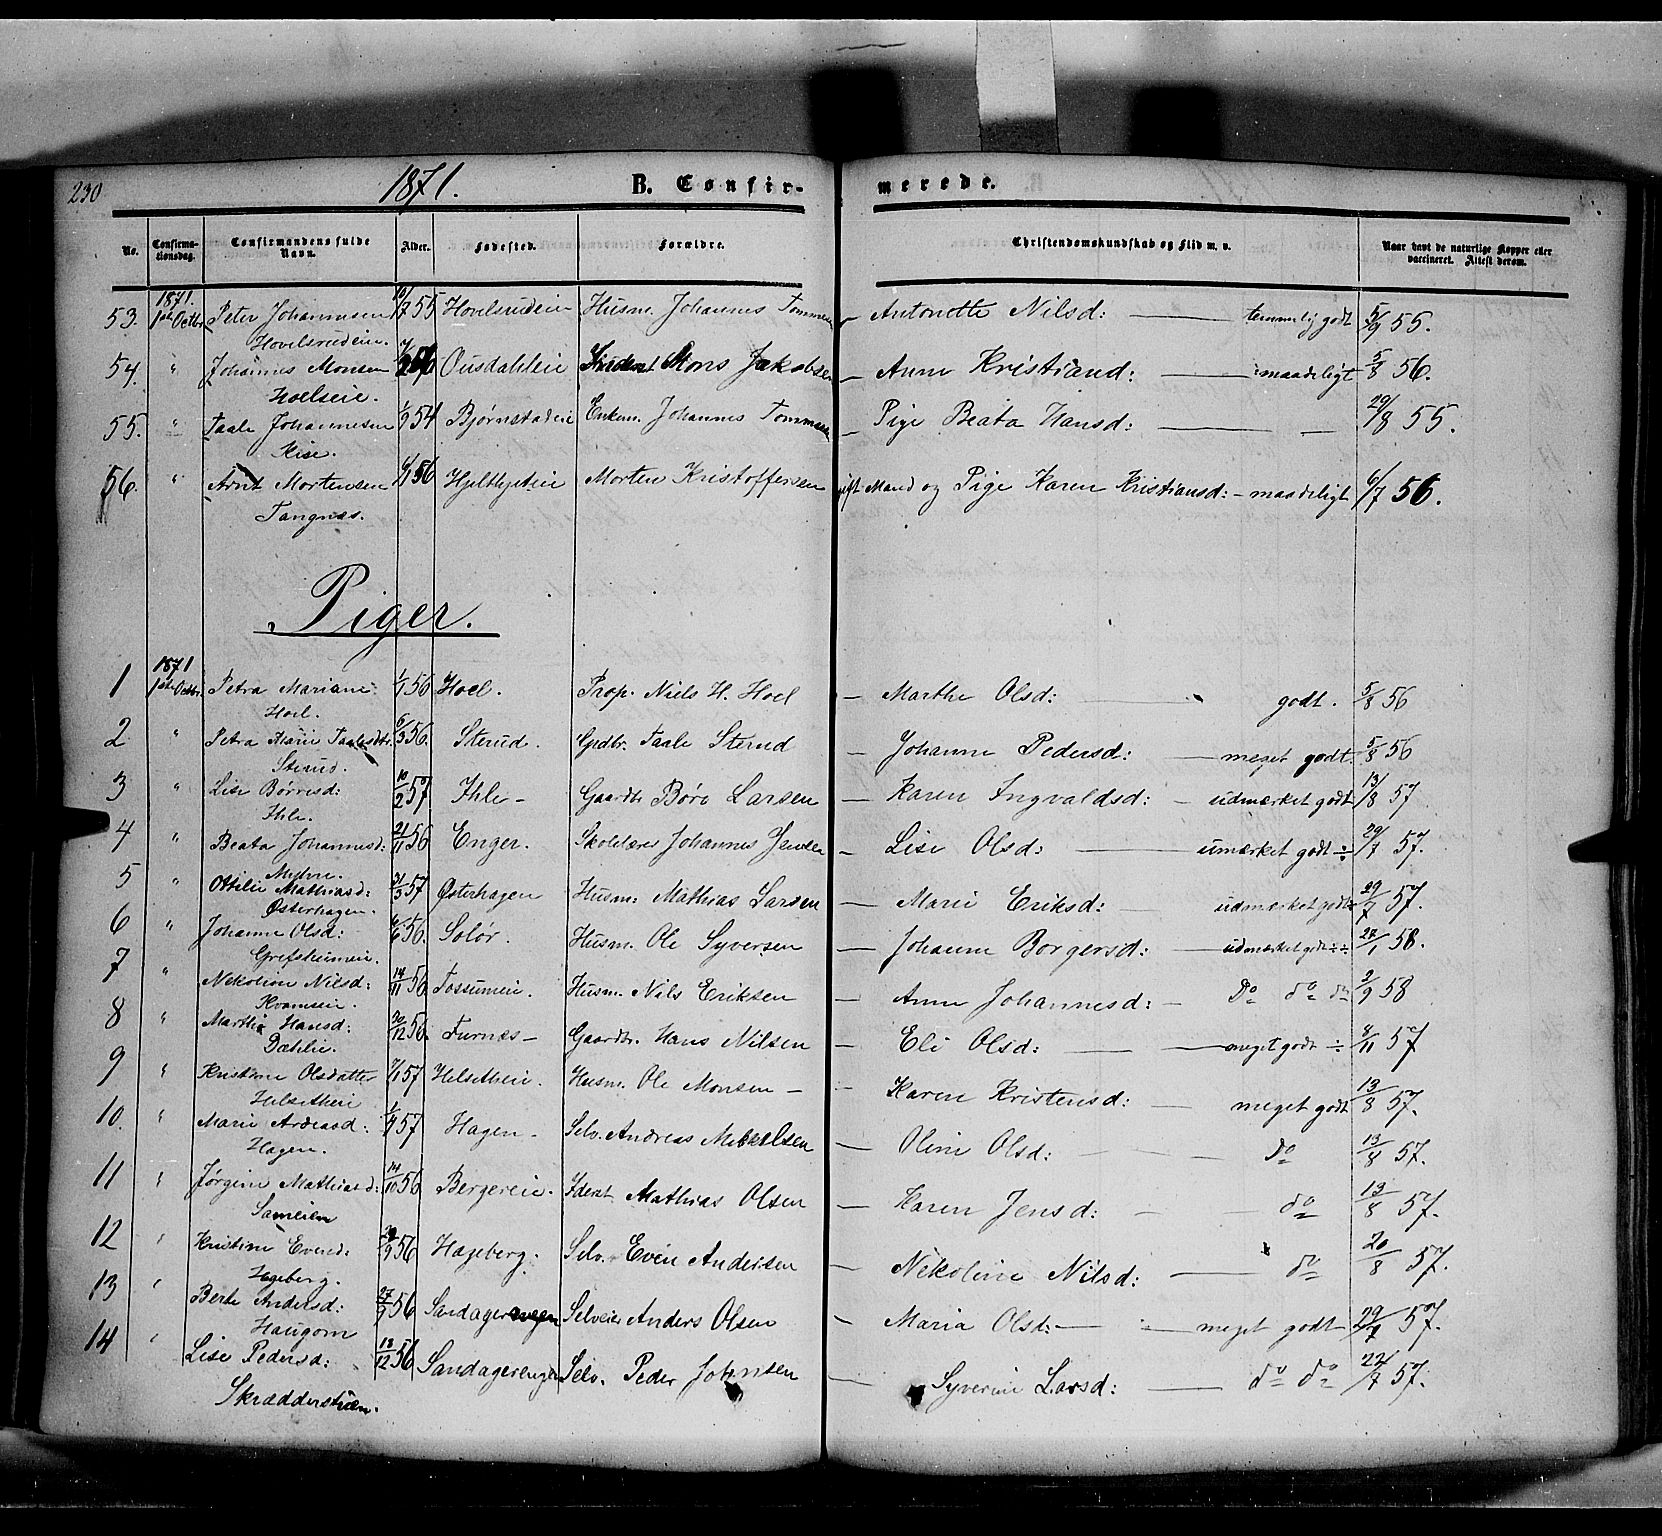 230 1871. B. Confir- merede.
No. Confirma-tionsdag. Confirmandens fulde Navn. Alder. Fødested. Forældre. Christendomskundskab og Flid m. v. Naar havt de naturlige Kopper eller vaccineret. Attest derom.
1871.
53. 1ste Octbr. Peter Johannesen 10/7 55 Hovelsrudeie Husm. Johannes Tommesen — Antonette Nilsd: — temmelig godt 5/9 55.
Hovelsrudeie.
54. " Johannes Monsen 56 Ousdahleie Mons Jakobsen — Anne Kristiansd: — maadeligt 5/8 56.
Hoelseie.
55. " Taale Johannesen 1/9 54 Bjørnstadeie Enkem. Johannes Tommesen — Pige Beata Hansd: — — 29/8 55.
Rise.
56. " Arnt Mortensen 6/1 56 Hjeltlyteie Morten Kristoffersen gift Mand og Pige Karen Kristiansd: — maadeligt 6/7 56.
Tangnæs.
Piger.
1871
1 1ste Octbr. Petra Mariane 1/1 56 Hoel. Prop. Niels H. Hoel — Marthe Olsd: — godt. 5/8 56
Hoel.
2 " Petra Marie Taalesdtr. 6/3 56. Sterud. Grdbr. Taale Sterud — Johanne Pedersd: — meget godt. 5/8 56
Sterud.
3 " Lise Børresd: 10/2 57 Ihle — Gaardbr Børe Larsen — Karen Ingvaldsd: — udmærket godt 13/8 57.
Ihle.
4 " Beata Johannesd: 21/11 56 Enger. Skolelærer Johannes Jensen — Lise Olsd: — umærket godt ÷ 29/7 57.
5 " Ottilie Mathiasd: 21/3 57 Østerhagen Husm: Mathias Larsen — Marie Eriksd: — udmærket godt 29/7 57.
Østerhagen.
6 " Johanne Olsd: 6/6 56. Solør. Husm. Ole Syversen — Johanne Borgersd: — udmærket godt ÷÷ 27/1 58.
Grefsheimeie.
7 " Nekoline Nilsd: 14/11 56 Fossumeie. Husm. Nils Eriksen — Anne Johannesd: — Do do do 2/9 58
Kvamseie.
8 " Marthe Hansd: 30/12 56. Furnæs — Gaardbr. Hans Nilsen — Eli Olsd: — meget godt ÷ 8/11 57
Dæhlie.
9 " Kristine Olsdatter 7/1 57 Helsetheie. Husm. Ole Monsen — Karen Kristensd: — meget godt 13/8 57.
Helsetheie
10. " Marie Andreasd: 57 Hagen — Selv. Andreas Mikkelsen — Oline Olsd: — do 13/8 57.
Hagen.
11 " Jørgine Mathiasd: 14/10 56 Bergereie. Iderst Mathias Olsen — Karen Jensd: — do 13/8 57.
Sameien
12 " Kristine Evensd: 29/9 56 Hageberg. Selv. Even Andersen — Nekoline Nilsd: — do 20/8 57.
Hageberg.
13 " Berte Andersd: 27/9 56 Sandagerengen Selveier Anders Olsen — Maria Olsd: — meget godt 29/7 57.
Haugom
14 " Lise Pedersd: 13/12 56 Sandagerengen Selv. Peder Johnsen — Syverine Larsd: — do do 22/7 57.
Skrædderstuen.